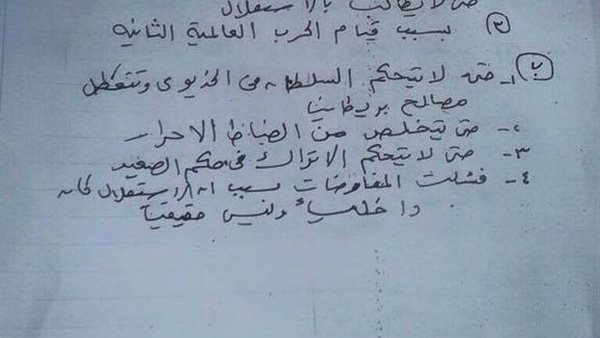 حتى لا يطالب بالاستقلال
(٣) بسبب قيام الحرب العالمية الثانيه
(ب)
١- حتى لا يتحكم السلطان فى الخديوى وتتعطل
مصالح بريطانيا
٢- حتى يتخلص من الضباط الاحرار
٣- حتى لا يتحكم الاتراك فى حكم الصعيد
٤- فشلت المفاوضات بسبب ان الاستقلال كان
داخلياً وليس حقيقياً